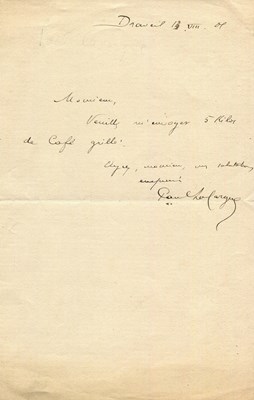 Draveil 13 VIII 05
Monsieur,
Veuillez m'envoyer 5 Kilos
de Café grillé.
Agréez, monsieur, mes salutations
empressées
Paul Lafargue